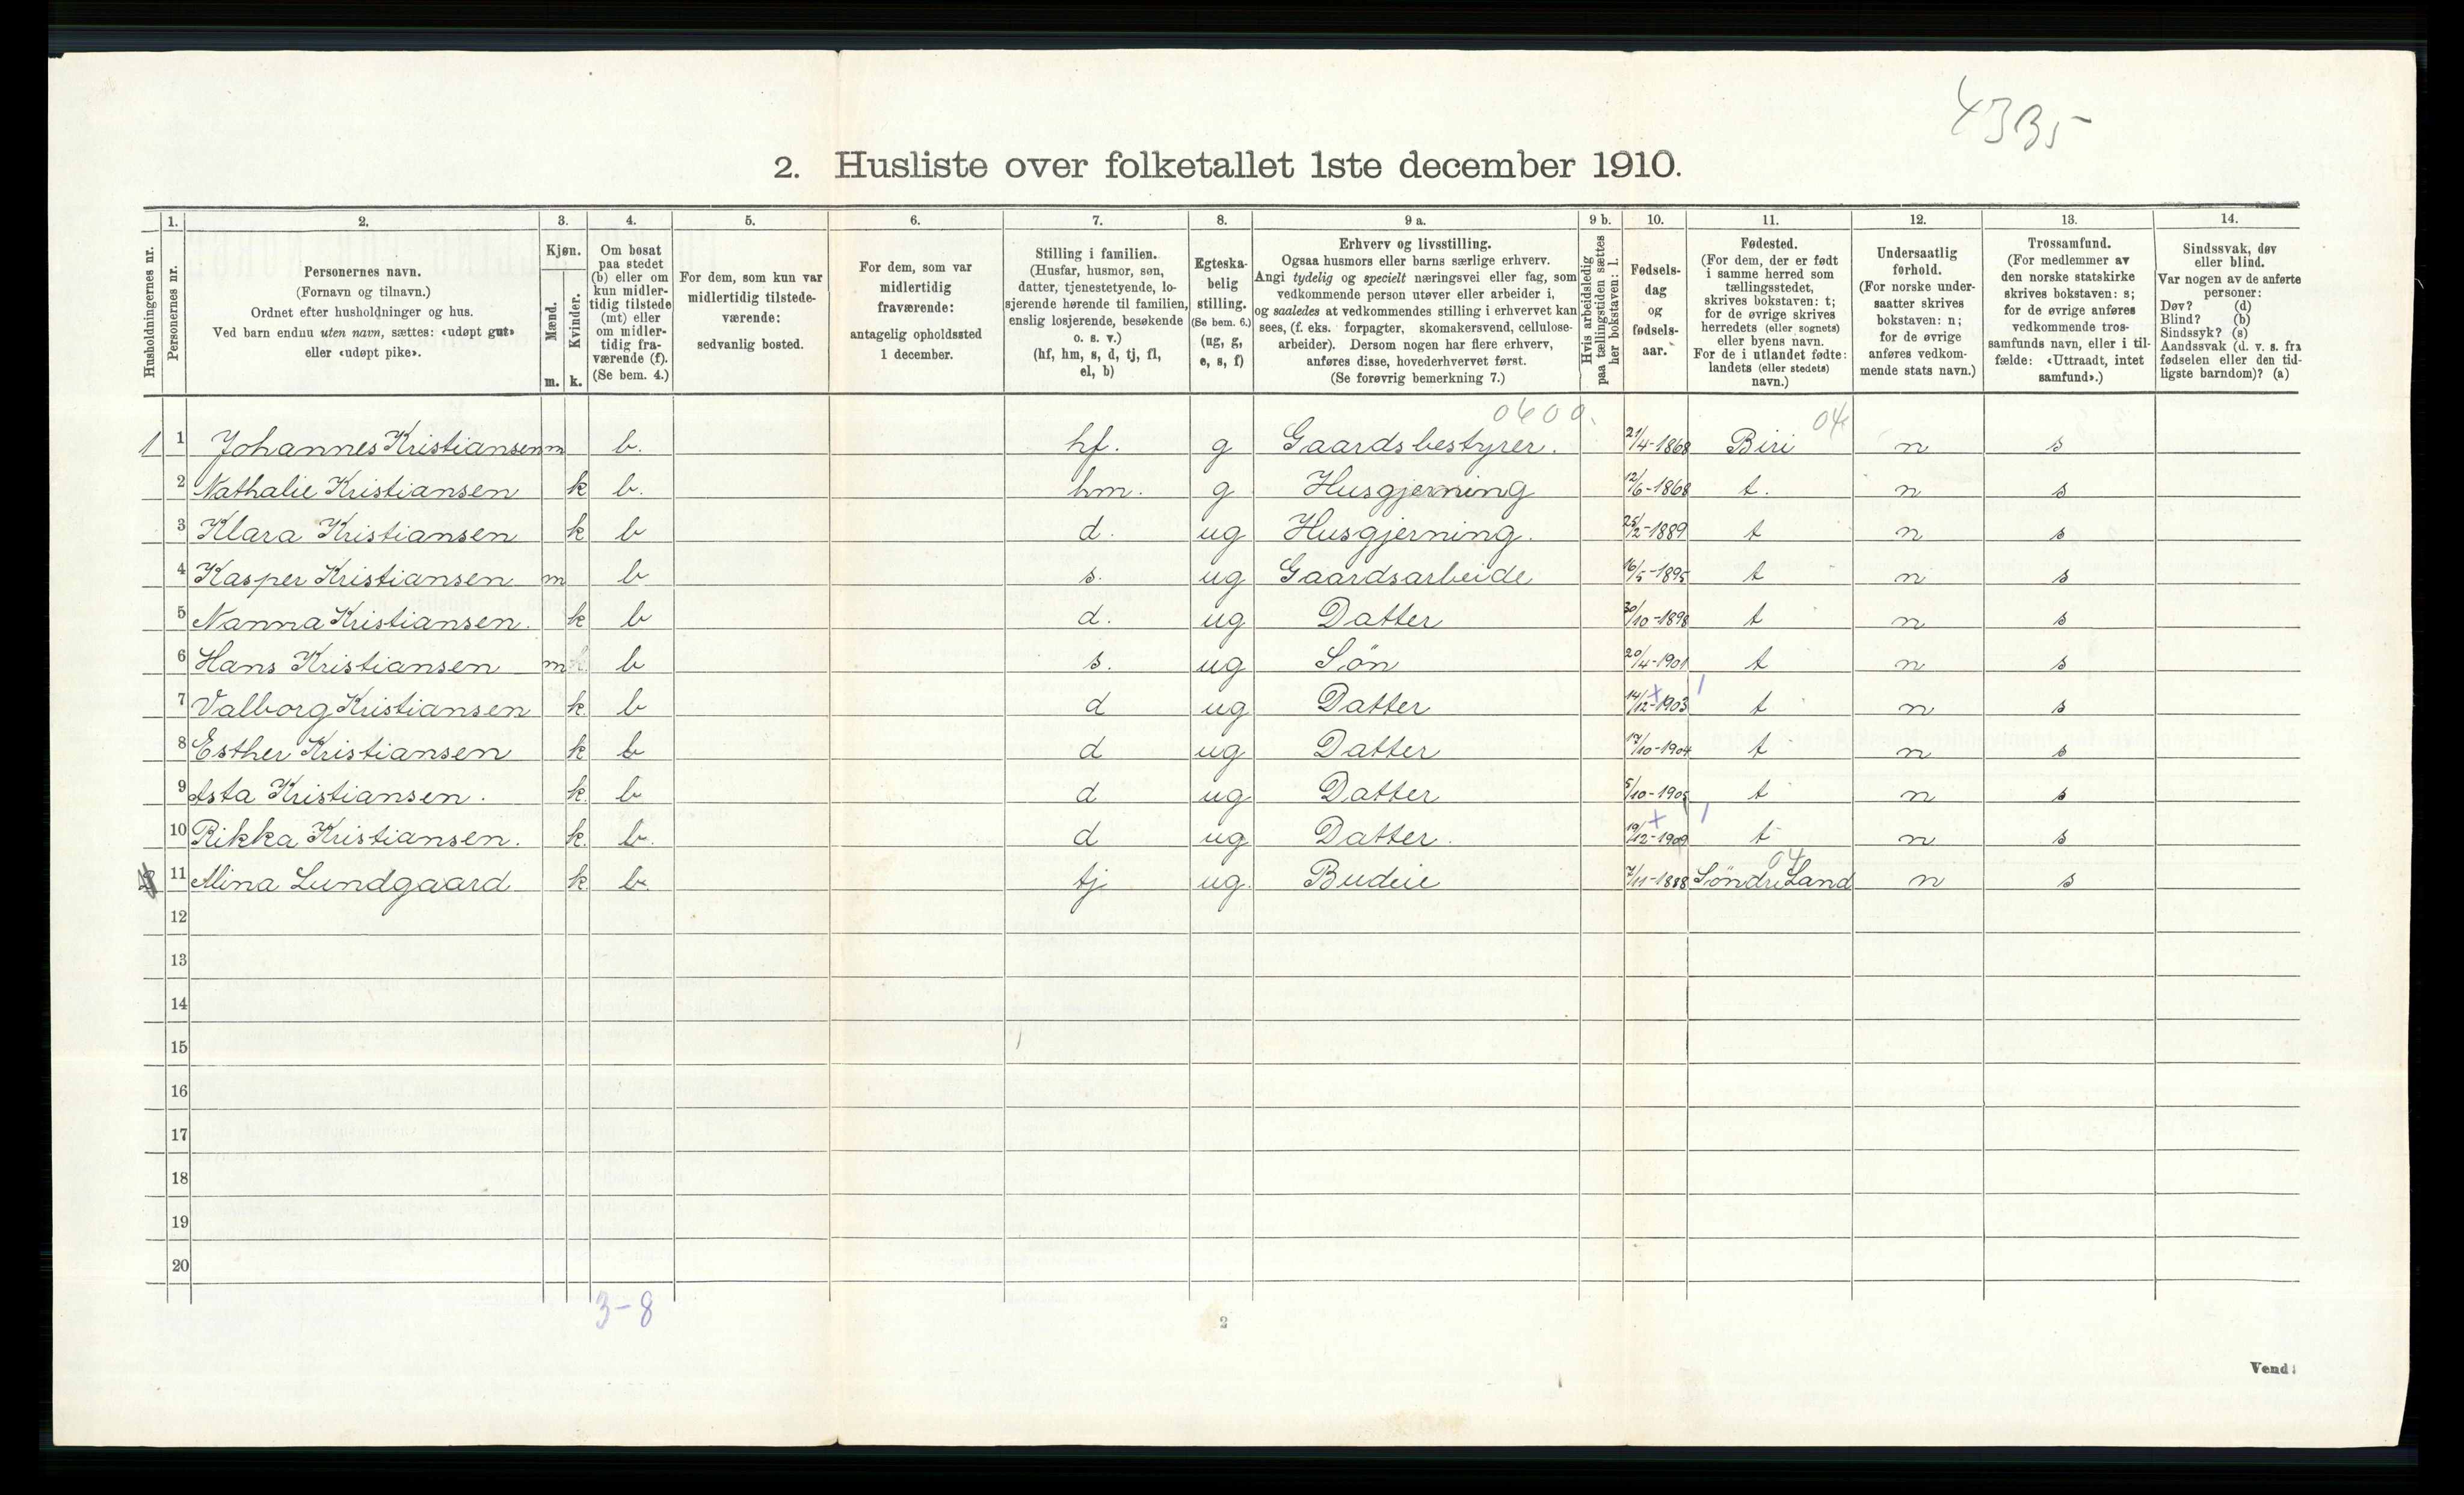 4335
2. Husliste over folketallet 1ste december 1910.
Husholdningernes nr.
1. Personernes nr.
2. Personernes navn.
(Fornavn og tilnavn.)
Ordnet efter husholdninger og hus.
Ved barn endnu uten navn, sættes: «udøpt gut»
eller «udøpt pike».
3. Kjøn.
Mænd. Kvinder.
m. k.
4. Om bosat
paa stedet
(b) eller om
kun midler-
tidig tilstede
(mt) eller
om midler-
tidig fra-
værende (f).
(Se bem. 4.)
5. For dem, som kun var
midlertidig tilstede-
værende:
sedvanlig bosted.
6. For dem, som var
midlertidig
fraværende:
antagelig opholdssted
1 december.
7. Stilling i familien.
(Husfar, husmor, søn,
datter, tjenestetyende, lo-
sjerende hørende til familien,
enslig losjerende, besøkende
o. s. v.)
(hf, hm, s, d, tj, fl,
el, b)
8. Egteska-
belig
stilling.
(Se bem. 6.)
(ug, g,
e, s, f)
9 a. Erhverv og livsstilling.
Ogsaa husmors eller barns særlige erhverv.
Angi tydelig og specielt næringsvei eller fag, som
vedkommende person utøver eller arbeider i,
og saaledes at vedkommendes stilling i erhvervet kan
sees, (f. eks. forpagter, skomakersvend, cellulose-
arbeider). Dersom nogen har flere erhverv,
anføres disse, hovederhvervet først.
(Se forøvrig bemerkning 7.)
9 b. Hvis arbeidsledig
paa tællingstiden sættes
her bokstaven: l.
10. Fødsels-
dag
og
fødsels-
aar.
11. Fødested.
(For dem, der er født
i samme herred som
tællingsstedet,
skrives bokstaven: t;
for de øvrige skrives
herredets (eller sognets)
eller byens navn.
For de i utlandet fødte:
landets (eller stedets)
navn.)
12. Undersaatlig
forhold.
(For norske under-
saatter skrives
bokstaven: n;
for de øvrige
anføres vedkom-
mende stats navn.)
13. Trossamfund.
(For medlemmer av
den norske statskirke
skrives bokstaven: s;
for de øvrige anføres
vedkommende tros-
samfunds navn, eller i til-
fælde: «Uttraadt, intet
samfund».)
14. Sindssvak, døv
eller blind.
Var nogen av de anførte
personer:
Døv? (d)
Blind? (b)
Sindssyk? (s)
Aandssvak (d. v. s. fra
fødselen eller den tid-
ligste barndom)? (a)
0600. 04
1 1 Johannes Kristiansen m b. hf. g Gaardsbestyrer. 21/4-1868 Biri n s
2 Nathalie Kristiansen k b. hm. g Husgjerning 12/6-1868 t. n s
3 Klara Kristiansen k b d. ug Husgjerning. 25/2-1889 t n s
4 Kasper Kristiansen m b s. ug Gaardsarbeide 16/5-1895 t n s
5 Nanna Kristiansen. k b d. ug Datter 30/10-1898 t n s
6 Hans Kristiansen m b s. ug Søn 20/4-1901 t n s
7 Valborg Kristiansen k. b d ug Datter 14/12-1903 t n s
8 Esther Kristiansen k b d ug Datter 17/10-1904 t n s
9 Asta Kristiansen. k. b d ug Datter 5/10-1905 t n s
10 Rikka Kristiansen. k. b. d ug Datter. 19/12-1909 t n s
04
11 Mina Lundgaard k b. tj ug. Budeie 7/11-1888 Søndre Land n s
12
13
14
15
16
17
18
19
20
3-8
2
Vend!